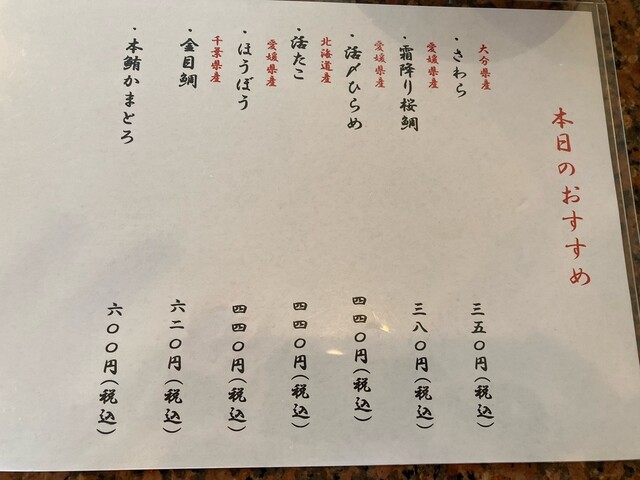 本日のおすすめ
大分県産
・さわら
三五〇円(税込)
愛媛県産
・霜降り桜鯛
三八〇円(税込)
愛媛県産
・活〆ひらめ
四四〇円(税込)
北海道産
・活たこ
四四〇円(税込)
愛媛県産
・ほうぼう
四四〇円(税込)
千葉県産
・金目鯛
六二〇円(税込)
・本鮪かまとろ
六〇〇円(税込)